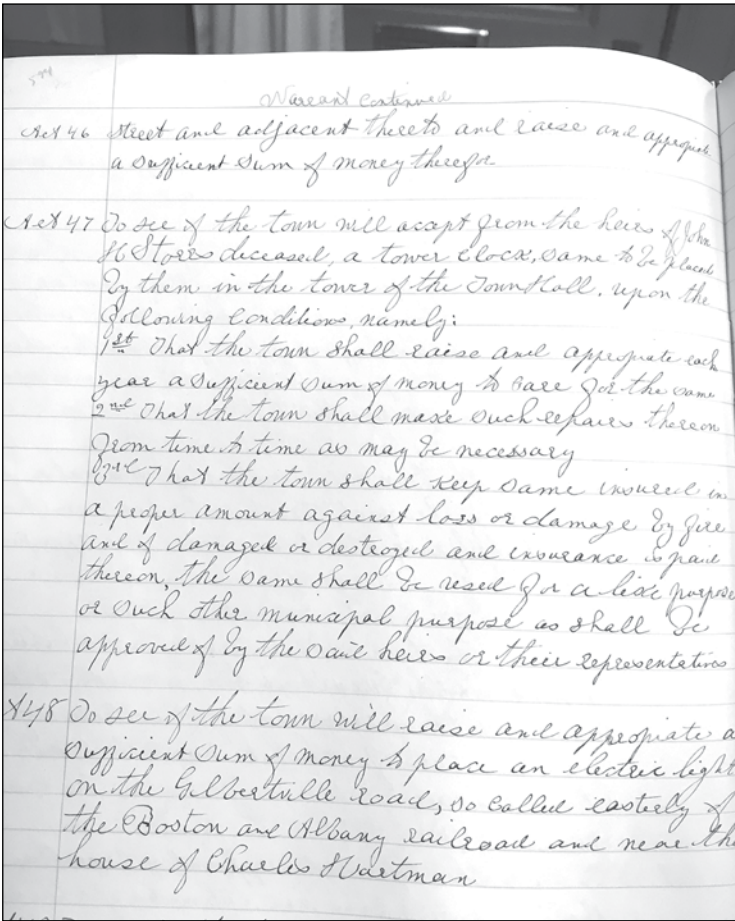 594
Warrant Continued
Art 46 Street and adjacent thereto and raise and appropiate
a sufficient sum of money therefor
Art 47 To see if the town will accept from the heirs of John
H Storrs deceased, a tower clock, same to be placed
by them in the tower of the Town Hall, upon the
following Conditions, namely:
1st That the town shall raise and appropriate each
year a sufficient sum of money to care for the same
2nd That the town shall make such repairs thereon
from time to time as may be necessary
3rd That the town shall keep same insured in
a proper amount against loss or damage by fire
and if damaged or destroyed and insurance is paid
thereon, the same shall be used for a like purpose
or such other municipal purpose as shall be
approved of by the said heirs or their representatives
Art 48 To see if the town will raise and appropiate a
sufficient sum of money to place an electric light
on the Gilbertville road, so called easterly of
the Boston and Albany railroad and near the
house of Charles Hartman